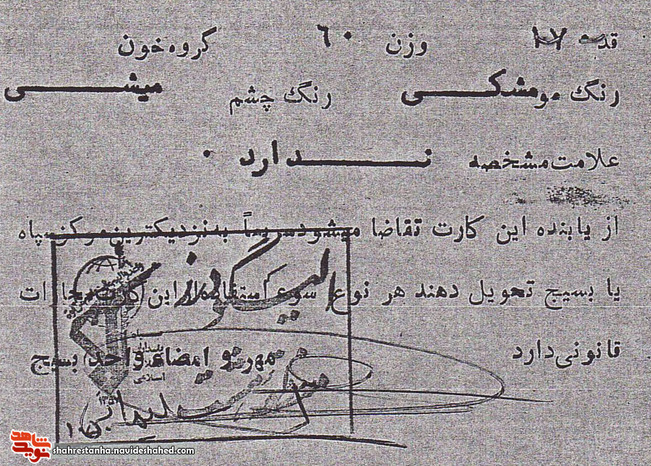 قد ۱۷۰ وزن ۶۰ گروه خون
رنگ مو مشکی رنگ چشم میشی
علامت مشخصه ندارد
از یابنده این کارت تقاضا میشود سریعاً به نزدیکترین مرکز سپاه
یا بسیج تحویل دهند هر نوع سوء استفاده از این کارت مجازات
قانونی دارد
مهر و امضاء واحد بسیج
نوید شاهد
shahrestanha.navideshahed.com